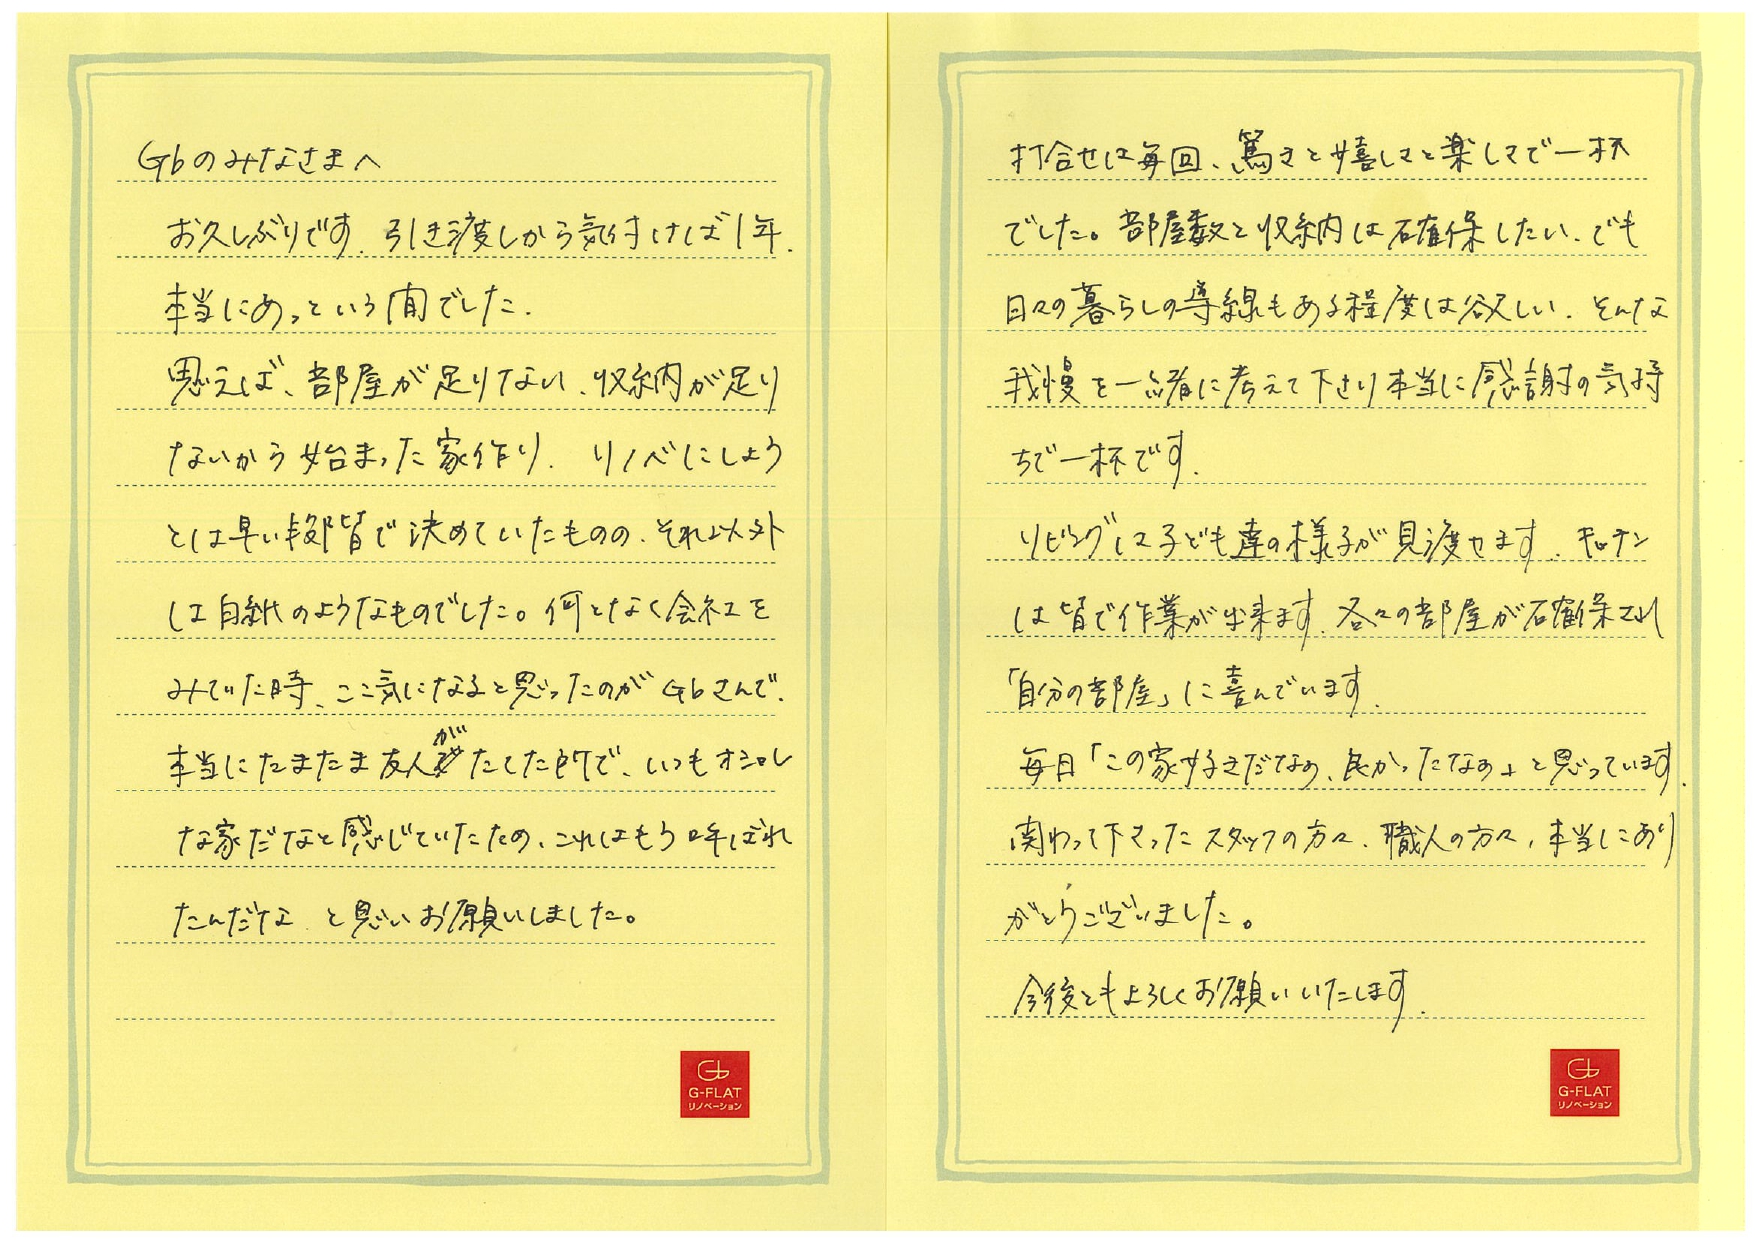 G♭のみなさまへ
お久しぶりです。引き渡しから気付けば1年。
本当にあっという間でした。
思えば、部屋が足りない、収納が足り
ないから始まった家作り。リノベにしよう
とは早い段階で決めていたものの、それ以外
は白紙のようなものでした。何となく会社を
みていた時、ここ気になると思ったのがG♭さんで、
本当にたまたま友人がたてた所で、いつもオシャレ
な家だなと感じていたため、これはもう呼ばれ
たんだな と思いお願いしました。
G♭
G-FLAT
リノベーション
打合せは毎回、驚きと嬉しさと楽しさで一杯
でした。部屋数と収納は確保したい、でも
日々の暮らしの導線もある程度は欲しい。そんな
我慢を一緒に考えて下さり本当に感謝の気持
ちで一杯です。
リビングは子ども達の様子が見渡せます。キッチン
は皆で作業が出来ます。各々の部屋が確保され
「自分の部屋」に喜んでいます。
毎日「この家好きだなぁ、良かったなぁ」と思っています。
関わって下さったスタッフの方々、職人の方々、本当にあり
がとうございました。
今後ともよろしくお願いいたします。
G♭
G-FLAT
リノベーション